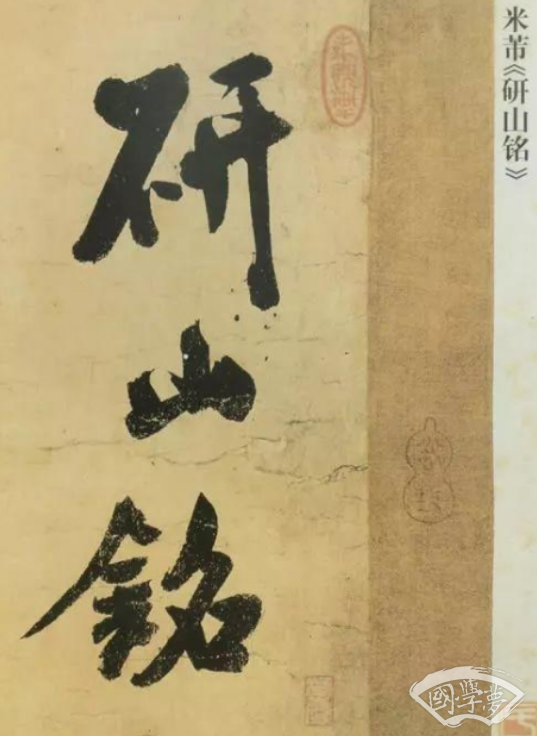 米芾《研山铭》
研山銘
國學夢